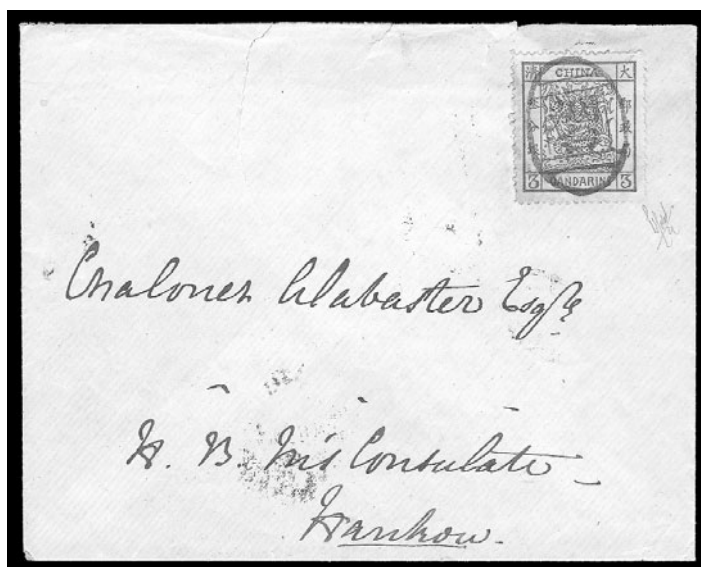 清 CHINA 大
郵政局
叁分銀
3 CANDARINS 3
Chaloner Alabaster Esqre
H. B. M's Consulate
Hankow.